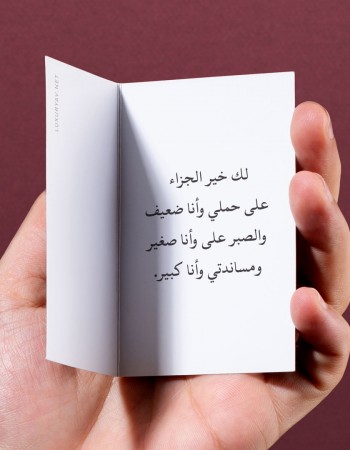 لك خير الجزاء
على حملي وأنا ضعيف
والصبر على وأنا صغير
ومساندتي وأنا كبير.
LUXURYAY.NET